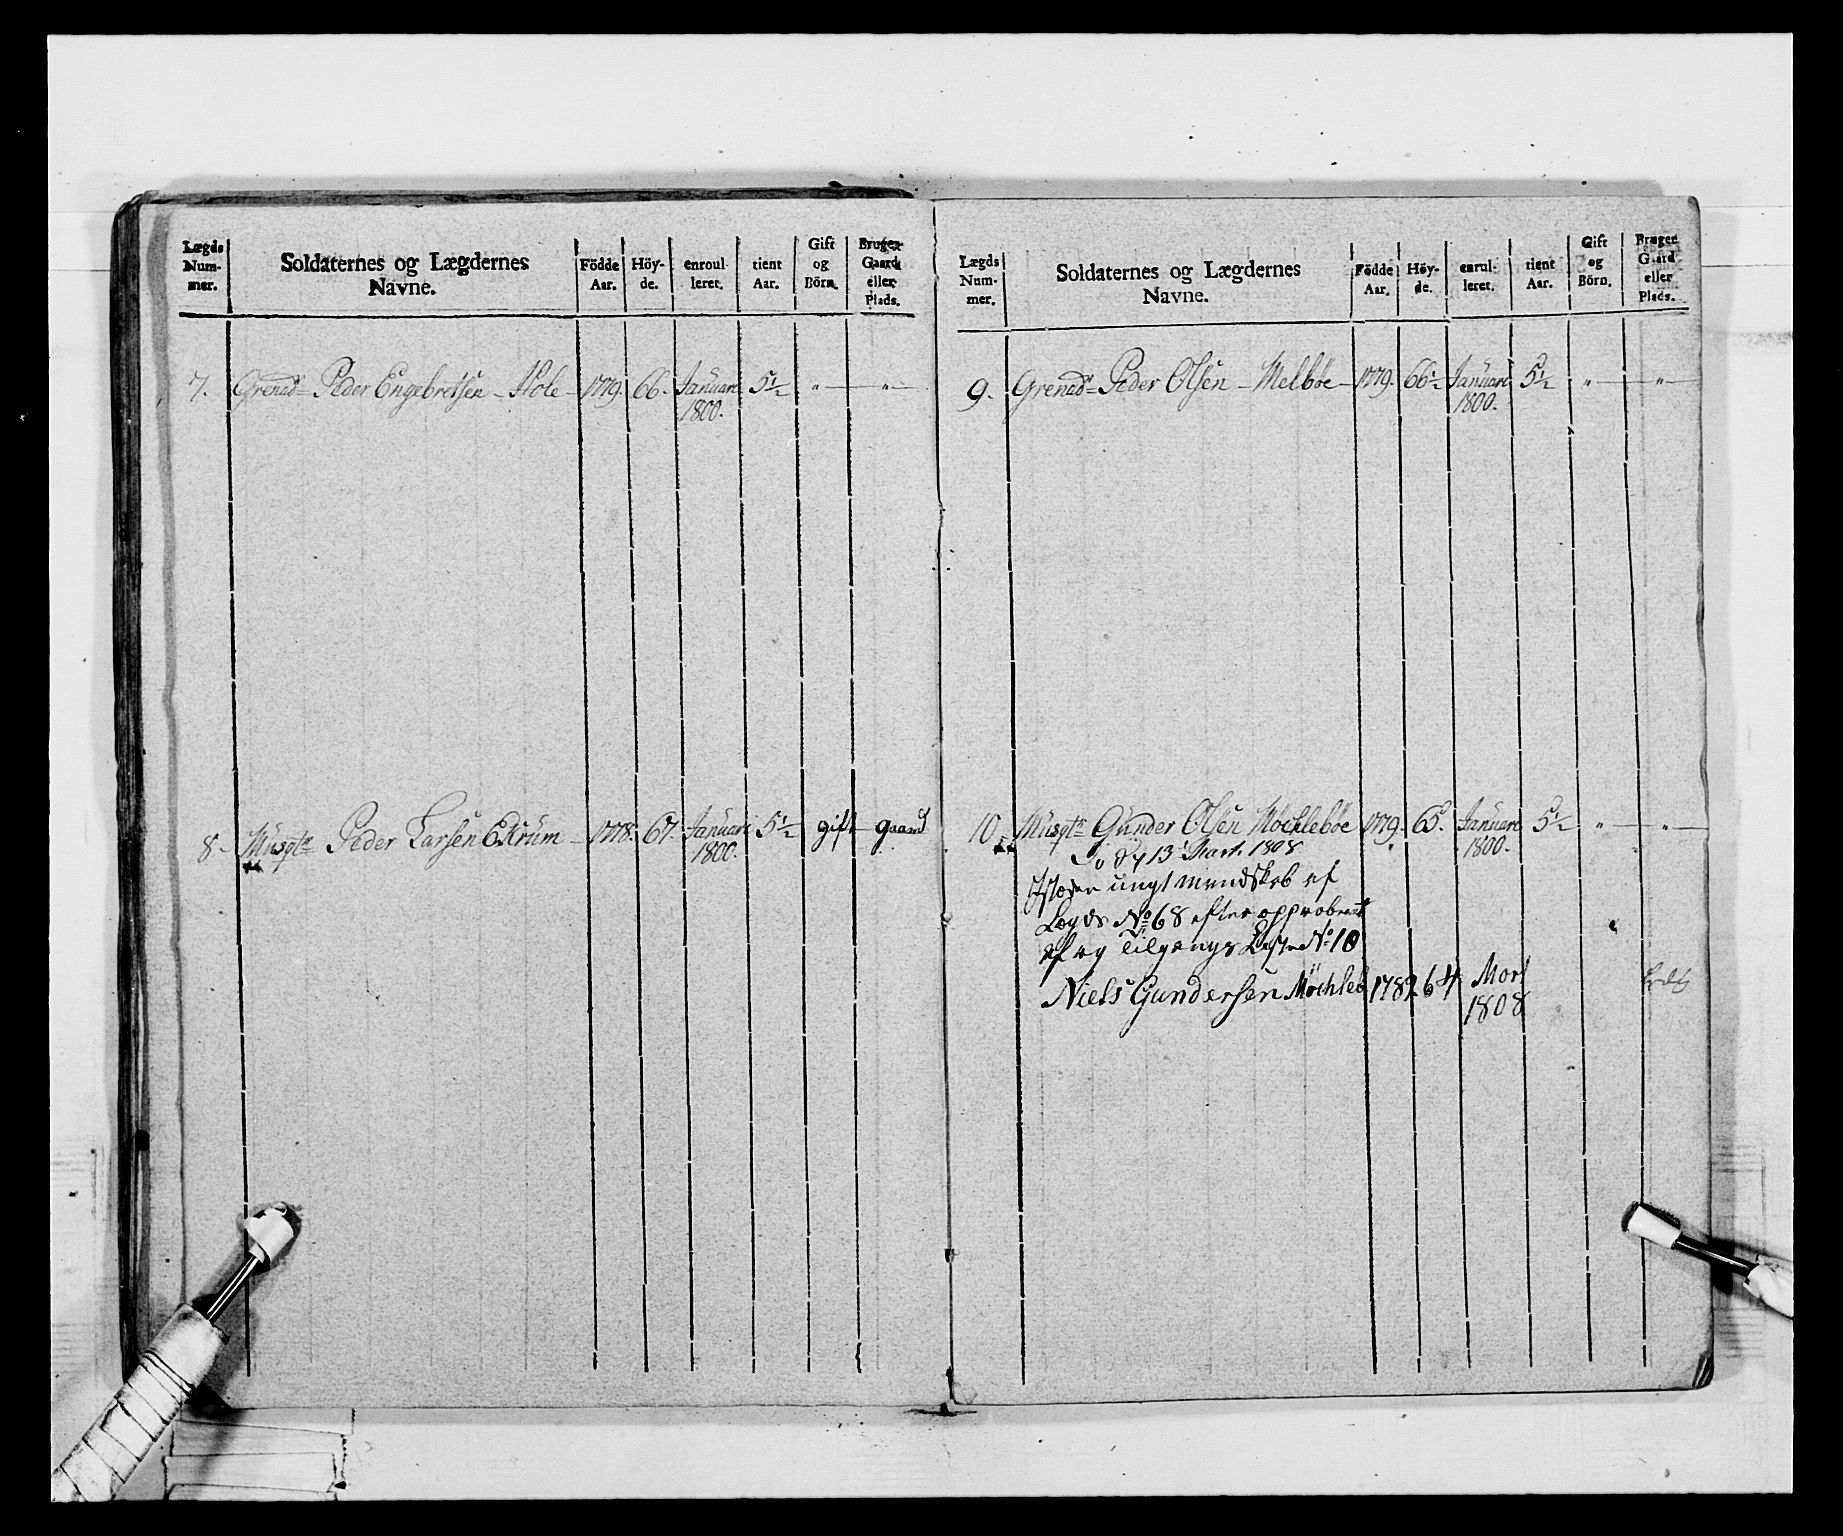 Lægds Num- mer. Soldaternes og Lægdernes Navne. Födde Aar. Höy- de. enroul- leret. tient Aar. Gift og Börn. Bruger Gaard eller Plads.
7. Grenadr Peder Engebretsen - Hole - 1779. 66. Januari 5½ " — "
1800.
8 - Musqtr Peder Larsen Ekrum - 1778. 67. Januari 5½ gift - gaard
1800.
Lægds Num- mer. Soldaternes og Lægdernes Navne. Födde Aar. Höy- de. enrul- leret. tient Aar. Gift og Börn. Bruger Gaard eller Plads.
9. Grenadr Peder Olsen - Melböe - 1779. 66½ Januari 5½ " — "
1800.
10 - Musqtr Gunder Olsen Mochleböe 1779. 65. Januari 5½ " — "
1800.
13 Mart. 1808
Istæden ungt mandskab af
Legds No 68 efter approberet
af og Tilgangs Liste No 10
Niels Gundersen Möchleb 1782 64 Mart
1808